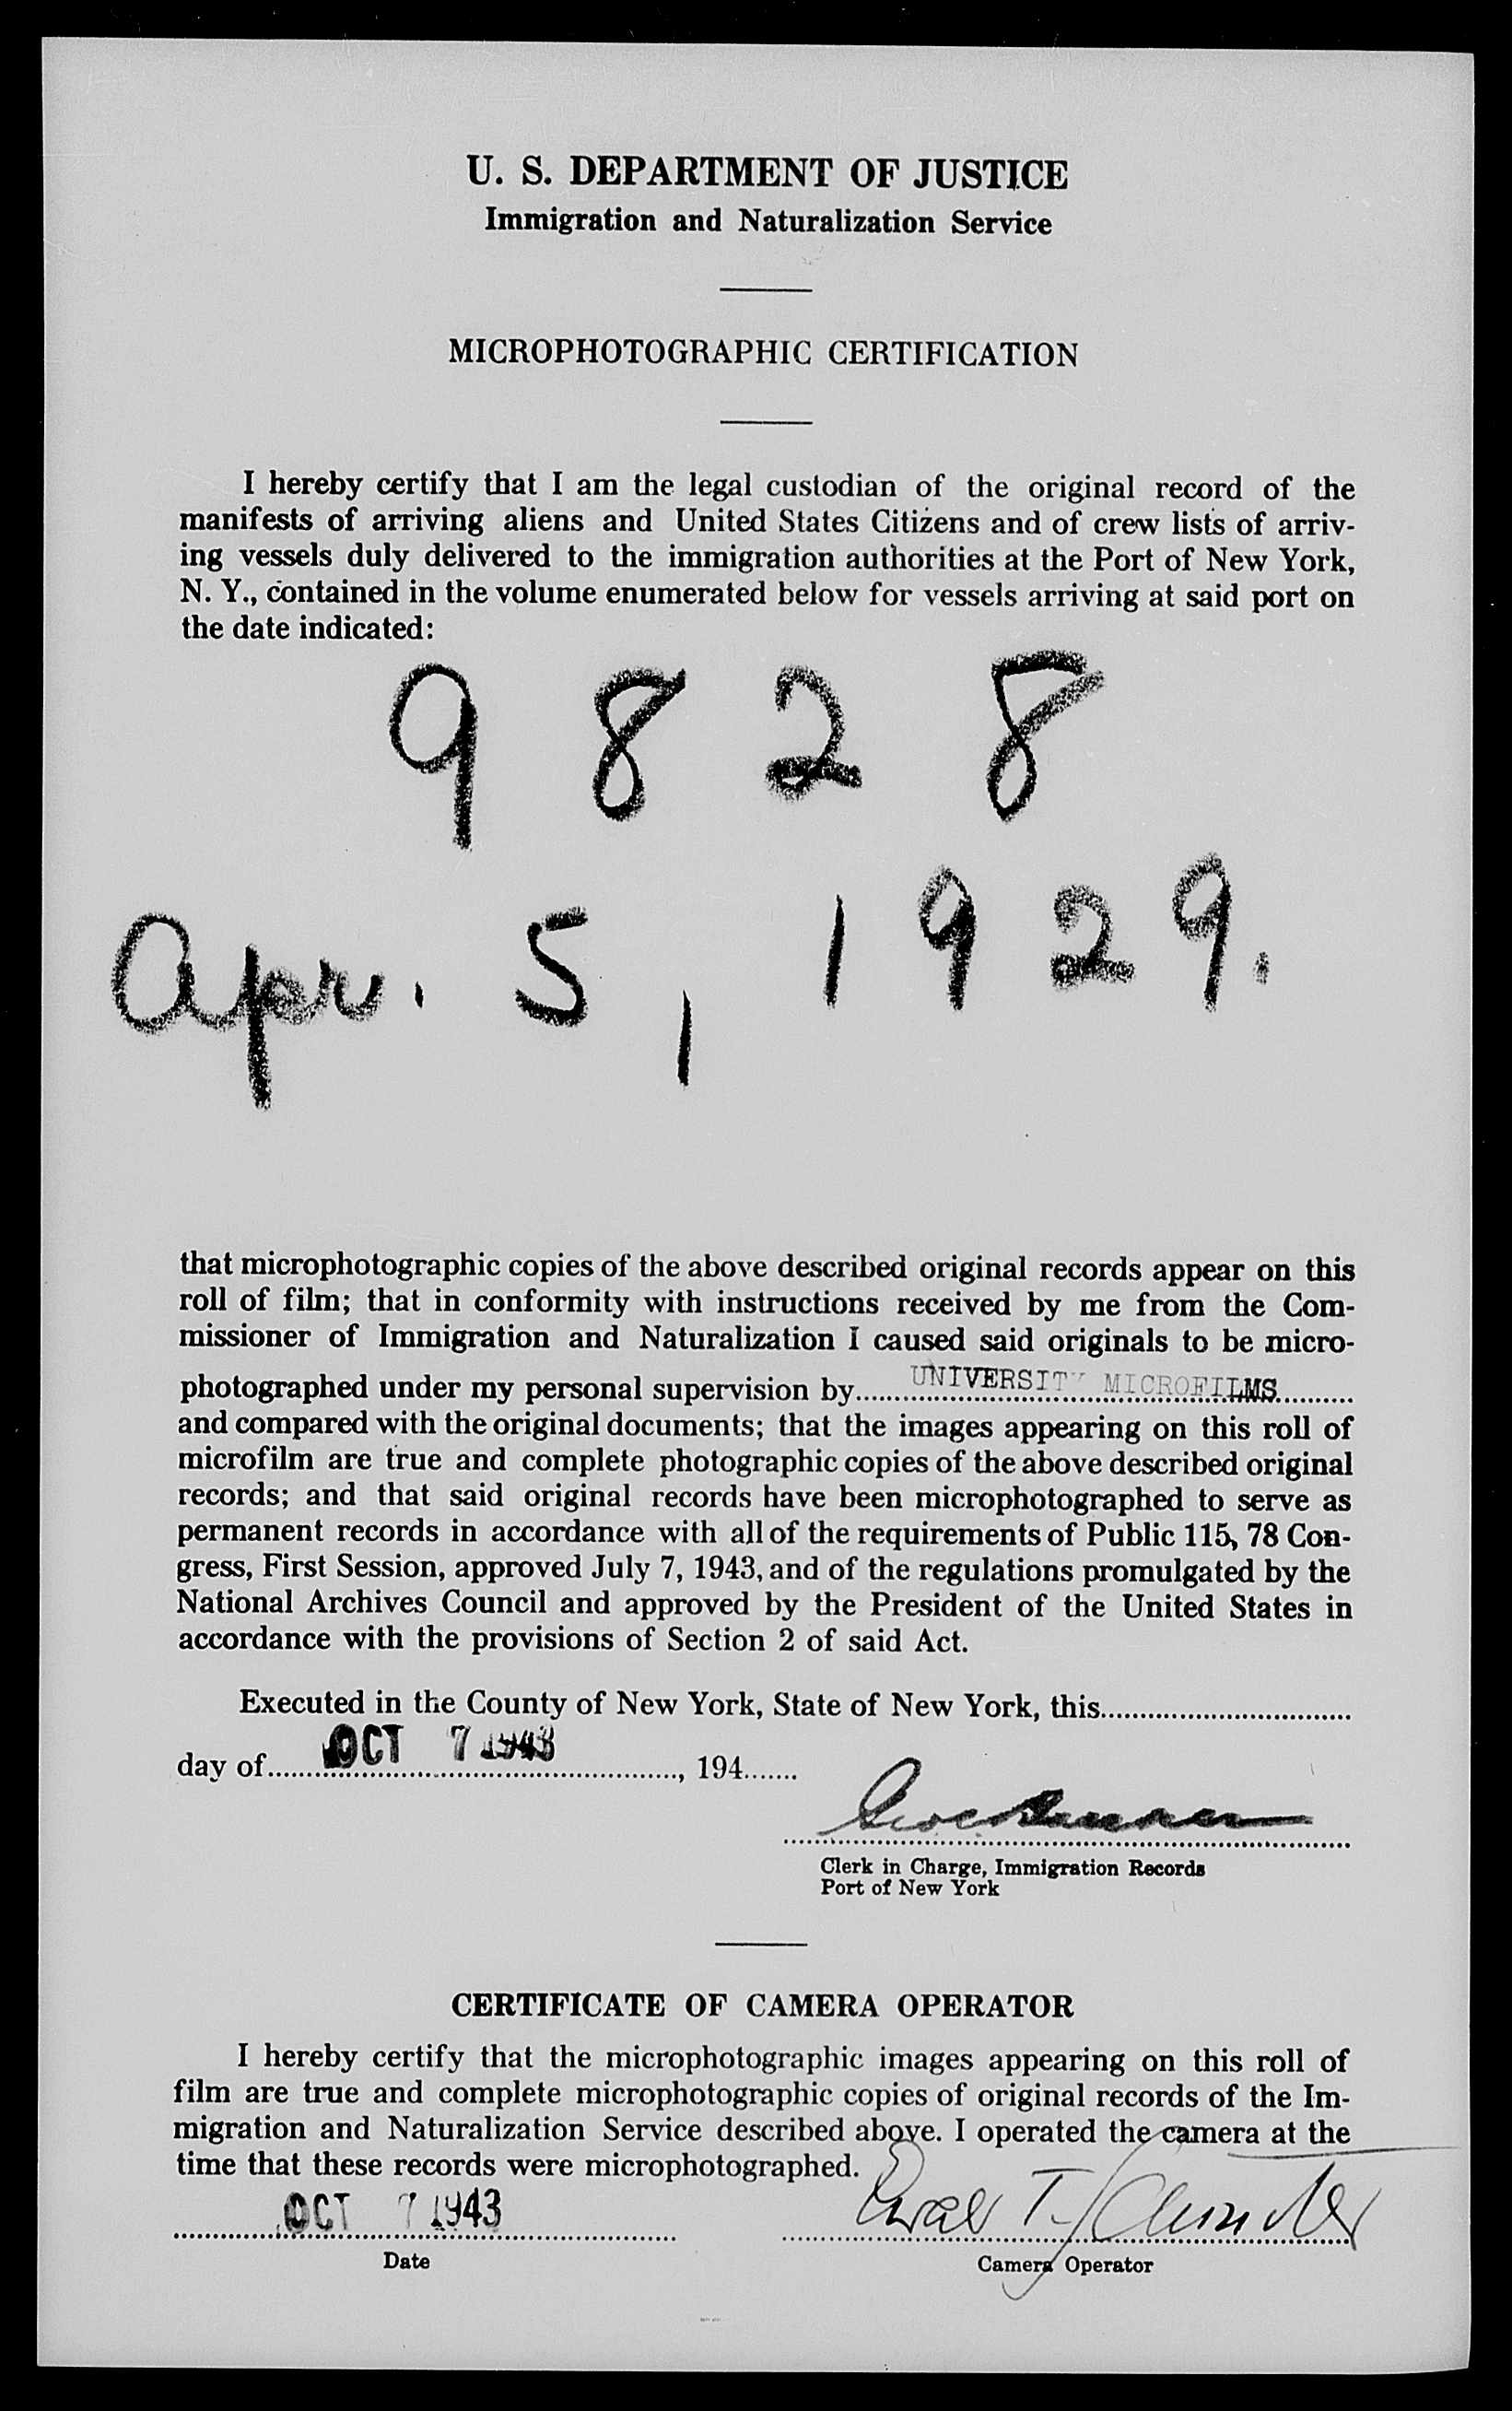 U. S. DEPARTMENT OF JUSTICE
Immigration and Naturalization Service
MICROPHOTOGRAPHIC CERTIFICATION
I hereby certify that I am the legal custodian of the original record of the
manifests of arriving aliens and United States Citizens and of crew lists of arriv-
ing vessels duly delivered to the immigration authorities at the Port of New York,
N. Y., contained in the volume enumerated below for vessels arriving at said port on
the date indicated:
9 8 2 8
Apr. 5, 1929.
that microphotographic copies of the above described original records appear on this
roll of film; that in conformity with instructions received by me from the Com-
missioner of Immigration and Naturalization I caused said originals to be micro-
photographed under my personal supervision by UNIVERSITY MICROFILMS
and compared with the original documents; that the images appearing on this roll of
microfilm are true and complete photographic copies of the above described original
records; and that said original records have been microphotographed to serve as
permanent records in accordance with all of the requirements of Public 115, 78 Con-
gress, First Session, approved July 7, 1943, and of the regulations promulgated by the
National Archives Council and approved by the President of the United States in
accordance with the provisions of Section 2 of said Act.
Executed in the County of New York, State of New York, this
day of OCT 7 1943, 194
Clerk in Charge, Immigration Records
Port of New York
CERTIFICATE OF CAMERA OPERATOR
I hereby certify that the microphotographic images appearing on this roll of
film are true and complete microphotographic copies of original records of the Im-
migration and Naturalization Service described above. I operated the camera at the
time that these records were microphotographed.
OCT 7 1943
Date
Camera Operator